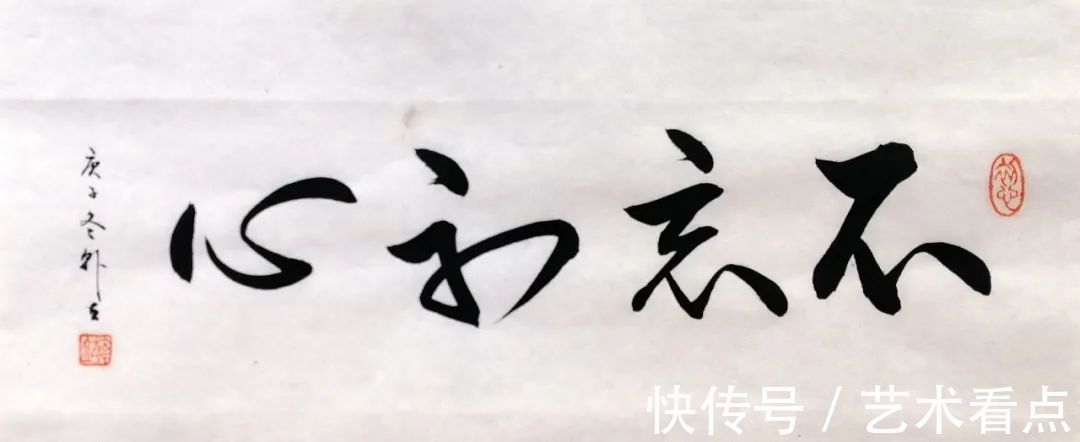 不忘初心
庚子冬
快传号 / 艺术看点